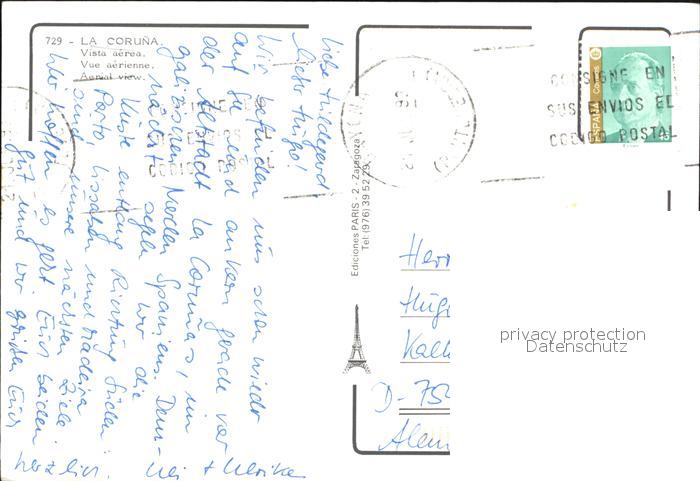 729 - LA CORUÑA.
Vista aérea.
Vue aérienne.
Aerial view.
Liebe Hildegard
lieber Hugo!
Wir befinden uns schon wieder
auf See und ankern gerade vor
der Altstadt La Coruñas, im
galizischen Norden Spaniens. Dem-
nächst segeln wir die
Küste entlang Richtung Süden
Porto Lissabon und Madeira
sind unsere nächsten Ziele.
Wir hoffen es geht Euch beiden
gut und wir grüßen Euch
herzlich. Uli + Ulrike
Ediciones PARIS - 2 - Zaragoza
Tel: (976) 39 52 29
CONSIGNE EN
SUS ENVIOS EL
CODIGO POSTAL
ESPAÑA Correos
Herr
Hug
Kall
D-75
Alem
privacy protection
Datenschutz